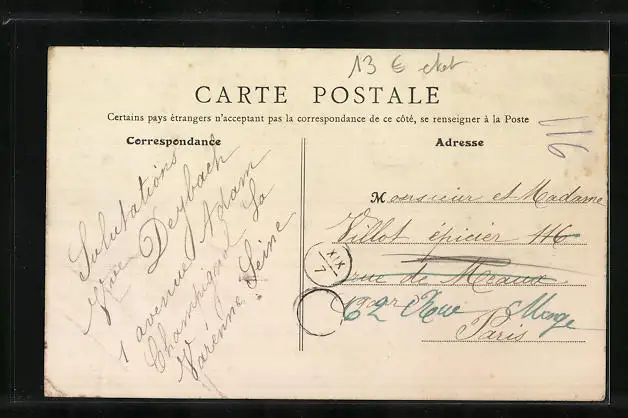 13 €
CARTE POSTALE
Certains pays étrangers n'acceptant pas la correspondance de ce côté, se renseigner à la Poste
Correspondance
Salutations
Vve Deybach
1 avenue Adam
Champignol La
Varenne Seine
Adresse
116
Monsieur et Madame
Villot épicier 116
XIX
7
rue de Meaux
62 Rue Monge
Paris